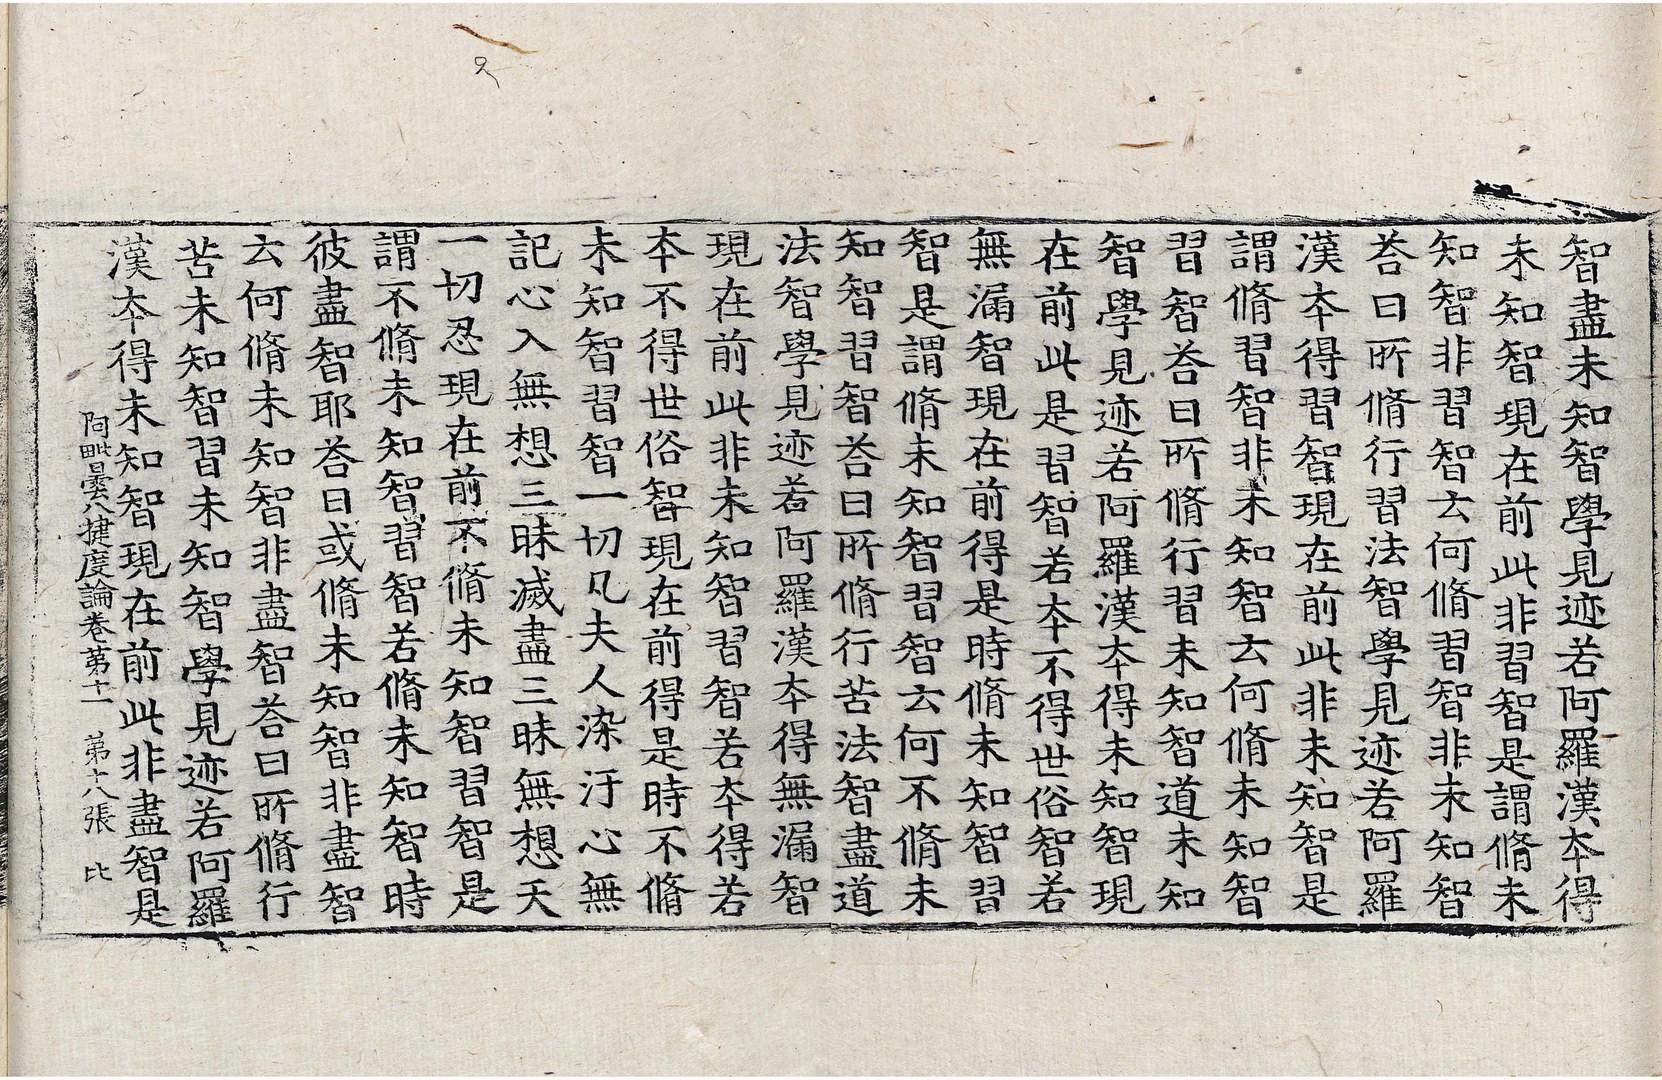 智盡未知智學見迹若阿羅漢夲得
未知智現在前此非習智是謂脩未
知智非習智云何脩習智非未知智
荅曰所脩行習法智學見迹若阿羅
漢夲得習智現在前此非未知智是
謂脩習智非未知智云何脩未知智
習智荅曰所脩行習未知智道未知
智學見迹若阿羅漢夲得未知智現
在前此是習智若夲不得世俗智若
無漏智現在前得是時脩未知智習
智是謂脩未知智習智云何不脩未
知智習智荅曰所脩行苦法智盡道
法智學見迹若阿羅漢夲得無漏智
現在前此非未知智習智若夲得若
夲不得世俗智現在前得是時不脩
未知智習智一切凡夫人染汙心無
記心入無想三昧滅盡三昧無想天
一切忍現在前不脩未知智習智是
謂不脩未知智習智若脩未知智時
彼盡智耶荅曰或脩未知智非盡智
云何脩未知智非盡智荅曰所脩行
苦未知智習未知智學見迹若阿羅
漢夲得未知智現在前此非盡智是
阿毗曇八揵度論卷苐十一 苐十八張 比